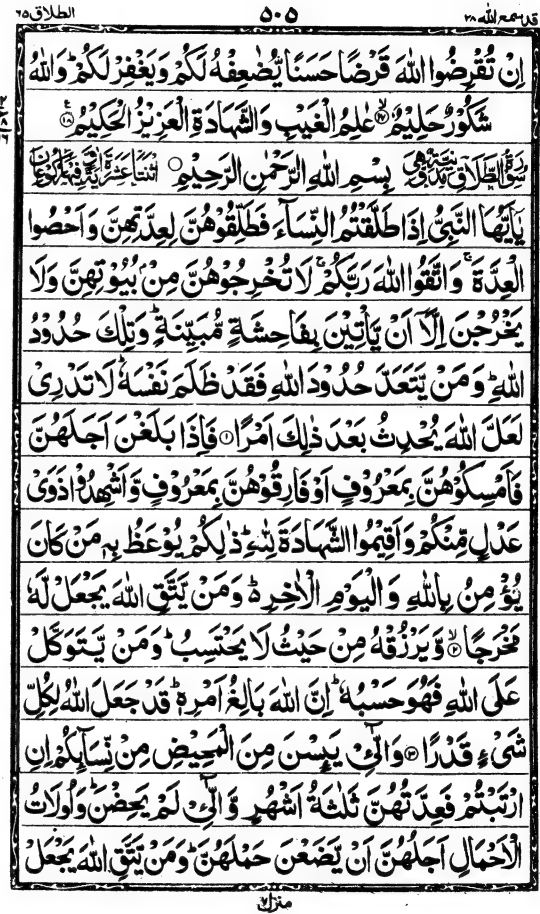 قد سمع الله ٢٨ ٥٠٥ الطلاق ٦٥
اِنْ تُقْرِضُوا اللّٰهَ قَرْضًا حَسَنًا يُّضٰعِفْهُ لَكُمْ وَيَغْفِرْ لَكُمْ ؕ وَاللّٰهُ
شَكُوْرٌ حَلِيْمٌ ۙ﴿۱۷﴾ عٰلِمُ الْغَيْبِ وَالشَّهَادَةِ الْعَزِيْزُ الْحَكِيْمُ ﴿۱۸﴾
سُوْرَةُ الطَّلَاقِ مَدَنِيَّةٌ وَّهِيَ بِسْمِ اللّٰهِ الرَّحْمٰنِ الرَّحِيْمِ ○ اثْنَتَا عَشْرَةَ اٰيَةً وَّفِيْهَا رُكُوْعَانِ
يٰۤاَيُّهَا النَّبِيُّ اِذَا طَلَّقْتُمُ النِّسَآءَ فَطَلِّقُوْهُنَّ لِعِدَّتِهِنَّ وَاَحْصُوا
الْعِدَّةَ ۚ وَاتَّقُوا اللّٰهَ رَبَّكُمْ ۚ لَا تُخْرِجُوْهُنَّ مِنْۢ بُيُوْتِهِنَّ وَلَا
يَخْرُجْنَ اِلَّاۤ اَنْ يَّاْتِيْنَ بِفَاحِشَةٍ مُّبَيِّنَةٍ ؕ وَتِلْكَ حُدُوْدُ
اللّٰهِ ؕ وَمَنْ يَّتَعَدَّ حُدُوْدَ اللّٰهِ فَقَدْ ظَلَمَ نَفْسَهٗ ؕ لَا تَدْرِيْ
لَعَلَّ اللّٰهَ يُحْدِثُ بَعْدَ ذٰلِكَ اَمْرًا ﴿۱﴾ فَاِذَا بَلَغْنَ اَجَلَهُنَّ
فَاَمْسِكُوْهُنَّ بِمَعْرُوْفٍ اَوْ فَارِقُوْهُنَّ بِمَعْرُوْفٍ وَّاَشْهِدُوْا ذَوَيْ
عَدْلٍ مِّنْكُمْ وَاَقِيْمُوا الشَّهَادَةَ لِلّٰهِ ؕ ذٰلِكُمْ يُوْعَظُ بِهٖ مَنْ كَانَ
يُؤْمِنُ بِاللّٰهِ وَالْيَوْمِ الْاٰخِرِ ۬ؕ وَمَنْ يَّتَّقِ اللّٰهَ يَجْعَلْ لَّهٗ
مَخْرَجًا ۙ﴿۲﴾ وَّيَرْزُقْهُ مِنْ حَيْثُ لَا يَحْتَسِبُ ؕ وَمَنْ يَّتَوَكَّلْ
عَلَى اللّٰهِ فَهُوَ حَسْبُهٗ ؕ اِنَّ اللّٰهَ بَالِغُ اَمْرِهٖ ؕ قَدْ جَعَلَ اللّٰهُ لِكُلِّ
شَيْءٍ قَدْرًا ﴿۳﴾ وَالّٰٓـِٔيْ يَئِسْنَ مِنَ الْمَحِيْضِ مِنْ نِّسَآئِكُمْ اِنِ
ارْتَبْتُمْ فَعِدَّتُهُنَّ ثَلٰثَةُ اَشْهُرٍ ۙ وَّالّٰٓـِٔيْ لَمْ يَحِضْنَ ؕ وَاُولَاتُ
الْاَحْمَالِ اَجَلُهُنَّ اَنْ يَّضَعْنَ حَمْلَهُنَّ ؕ وَمَنْ يَّتَّقِ اللّٰهَ يَجْعَلْ
منزل ٧